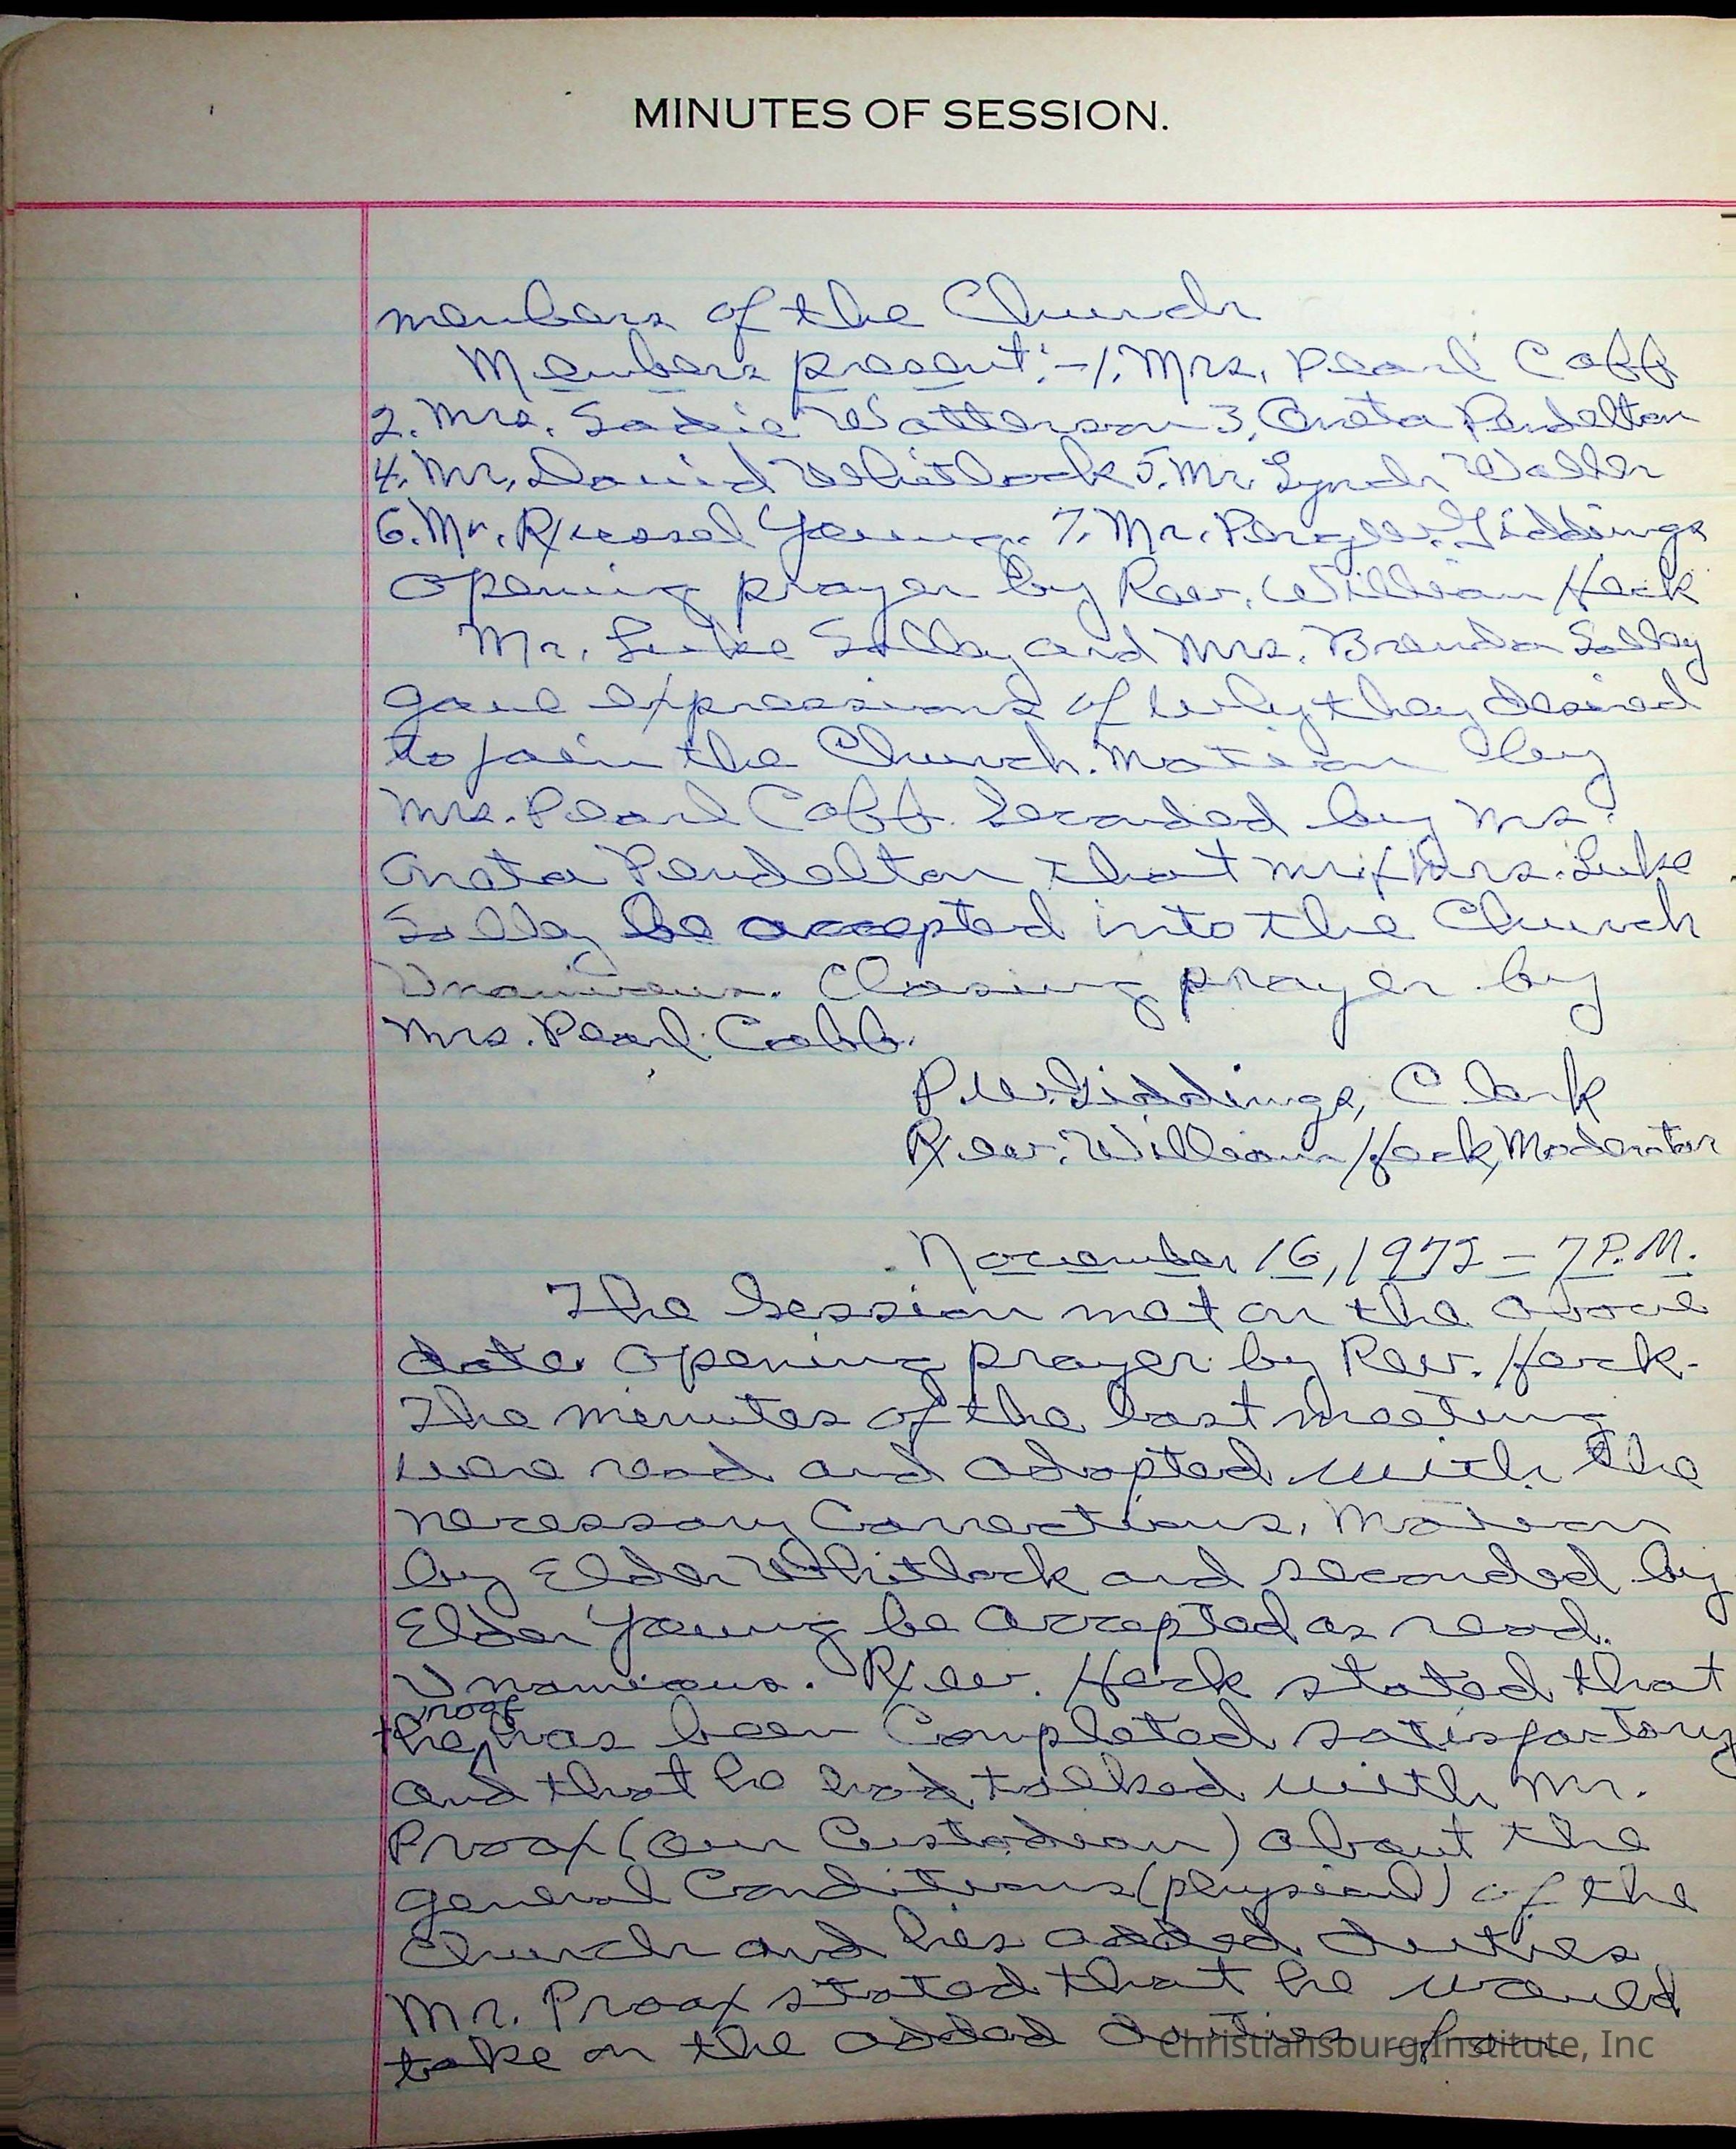 MINUTES OF SESSION.
members of the Church
Members present:-1. Mrs. Pearl Cobb
2. Mrs. Sadie Watterson 3. Oneta Pendelton
4. Mr. David Whitlock 5. Mr. Lynch Waller
6. Mr. Russel Young. 7. Mr. Giddings
Opening prayer by Rev. William Heck
Mr. Luke Solley and Mrs. Brenda Solley
gave expressions of why they desired
to join the Church. Motion by
Mrs. Pearl Cobb. Seconded by Mrs.
Oneta Pendelton that Mr. & Mrs. Luke
Solley be accepted into the Church
Unanimous. Closing prayer by
Mrs. Pearl Cobb.
P.W. Giddings, Clerk
Rev. William Heck, Moderator
November 16, 1972 - 7 P.M.
The Session met on the above
date. Opening prayer by Rev. Heck.
The minutes of the last meeting
were read and adopted with the
necessary Corrections, Motion
by Elder Whitlock and seconded by
Elder Young be accepted as read.
Unamious. Rev. Heck stated that
the roof has been Completed satisfactory
and that he had talked with Mr.
Proax (our Custodian) about the
general Conditions (physical) of the
Church and his added duties
Mr. Proax stated that he would
take on the added duties for
Christiansburg Institute, Inc